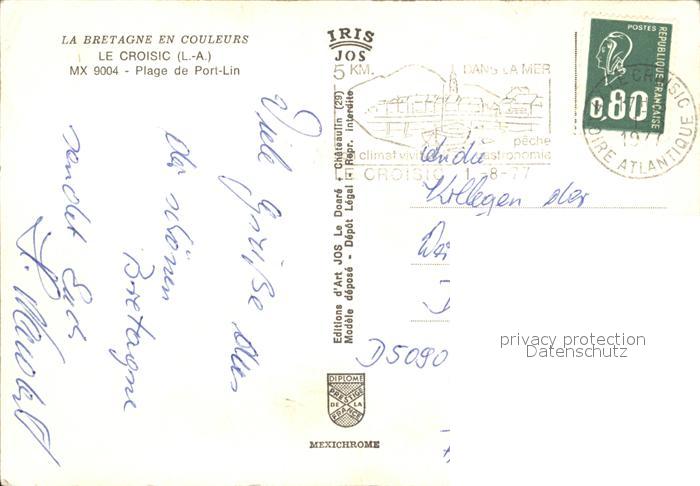 LA BRETAGNE EN COULEURS
LE CROISIC (L.-A.)
MX 9004 - Plage de Port-Lin
IRIS
JOS
5 KM. DANS LA MER
pêche
climat gastronomie
LE CROISIC 1-8-77
POSTES
REPUBLIQUE FRANÇAISE
0,80
LE CROISIC
1977
LOIRE ATLANTIQUE
Viele Grüße aus
der schönen
Bretagne
sendet Euch
Editions d'Art JOS Le Doaré - Châteaulin (29)
Modèle déposé - Dépôt Légal - Repr. interdite
An die
Kollegen der
D 5090
privacy protection
Datenschutz
DIPLOME
PRESTIGE
DE LA
FRANCE
MEXICHROME